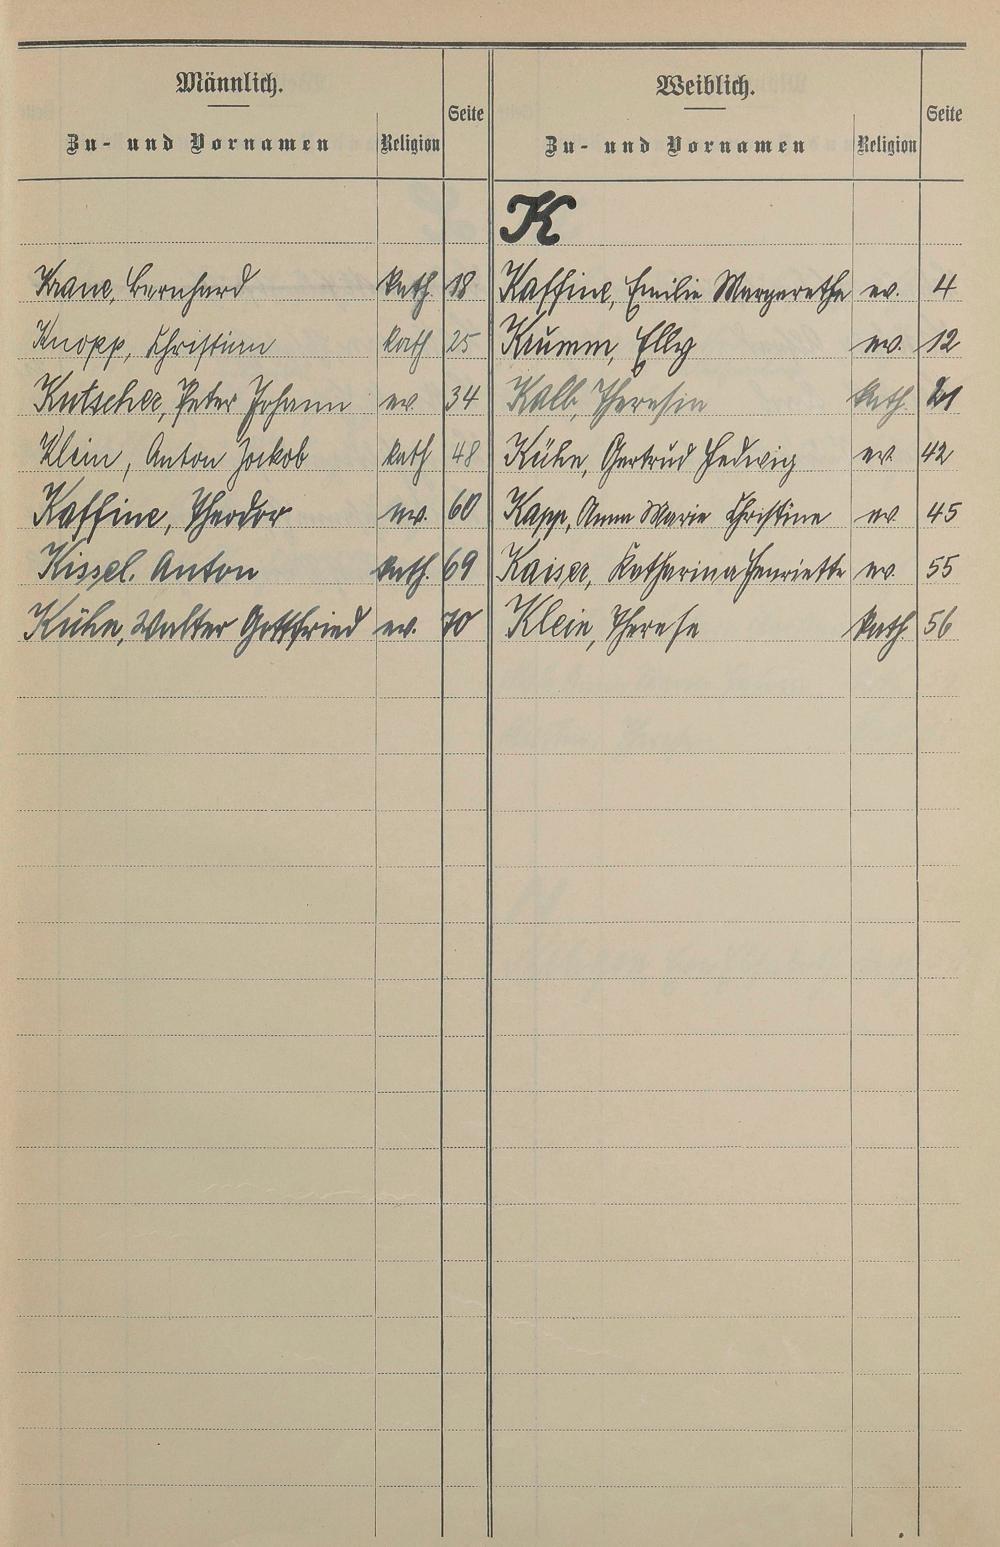 Männlich.
Zu- und Vornamen Religion Seite
Krane, Bernhard kath. 18
Knopp, Christian kath 25
Kutscher, Peter Johann ev. 34
Klein, Anton Jackob kath 48
Kaffine, Theodor ev. 60
Kissel, Anton kath. 69
Kühn, Walter Gottfried ev. 70
Weiblich.
Zu- und Vornamen Religion Seite
K
Kaffine, Emilie Margarethe ev. 4
Krumm, Elly ev. 12
Kalb, Theresia kath.
Kühn, Gertrud Hedwig ev. 42
Kapp, Anna Marie Christine ev. 45
Kaiser, Katharina Henriette ev. 55
Klein, Therese kath. 56